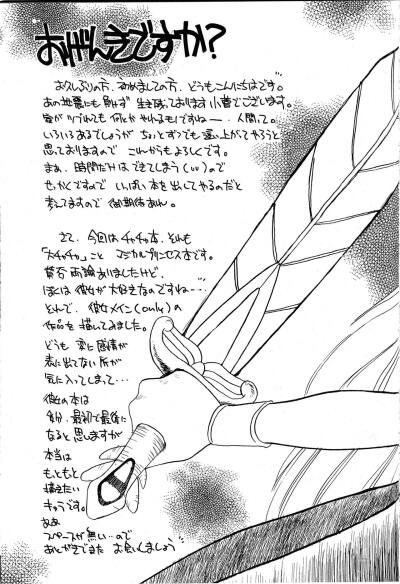 おげんきですか?
お久しぶりの方、初めましての方、どうもこんにちはです。
あの地震にも負けず 生き残っております 小菅でございます。
家がツブれても 何とか やれるモノですねー、人間って。
いろいろあるでしょうが ちょいとずつでも 這い上がてやろうと
思っておりますので これからもよろしくです。
まぁ、時間だけはできてしまう(いい)ので
せっかくですので いっぱい本を出してやるのだと
考えてますので 御期待あれ。
さて、今回はチャチャ本、それも
「大チャチャ」こと マジカルプリンセス本です。
賛否両論ありましたけど、
ぼくは彼女が大好きなのですね---
それで、彼女メイン(only)の
作品を描いてみました。
どうも 変に感情が
表に出てない所が
気に入ってしまって…
彼女の本は
多分、最初で最後に
なると思いますが
本当は
もともと
描きたい
キャラです。
ああ
スペースが無い…ので
あとがきでまた お会いしましょう